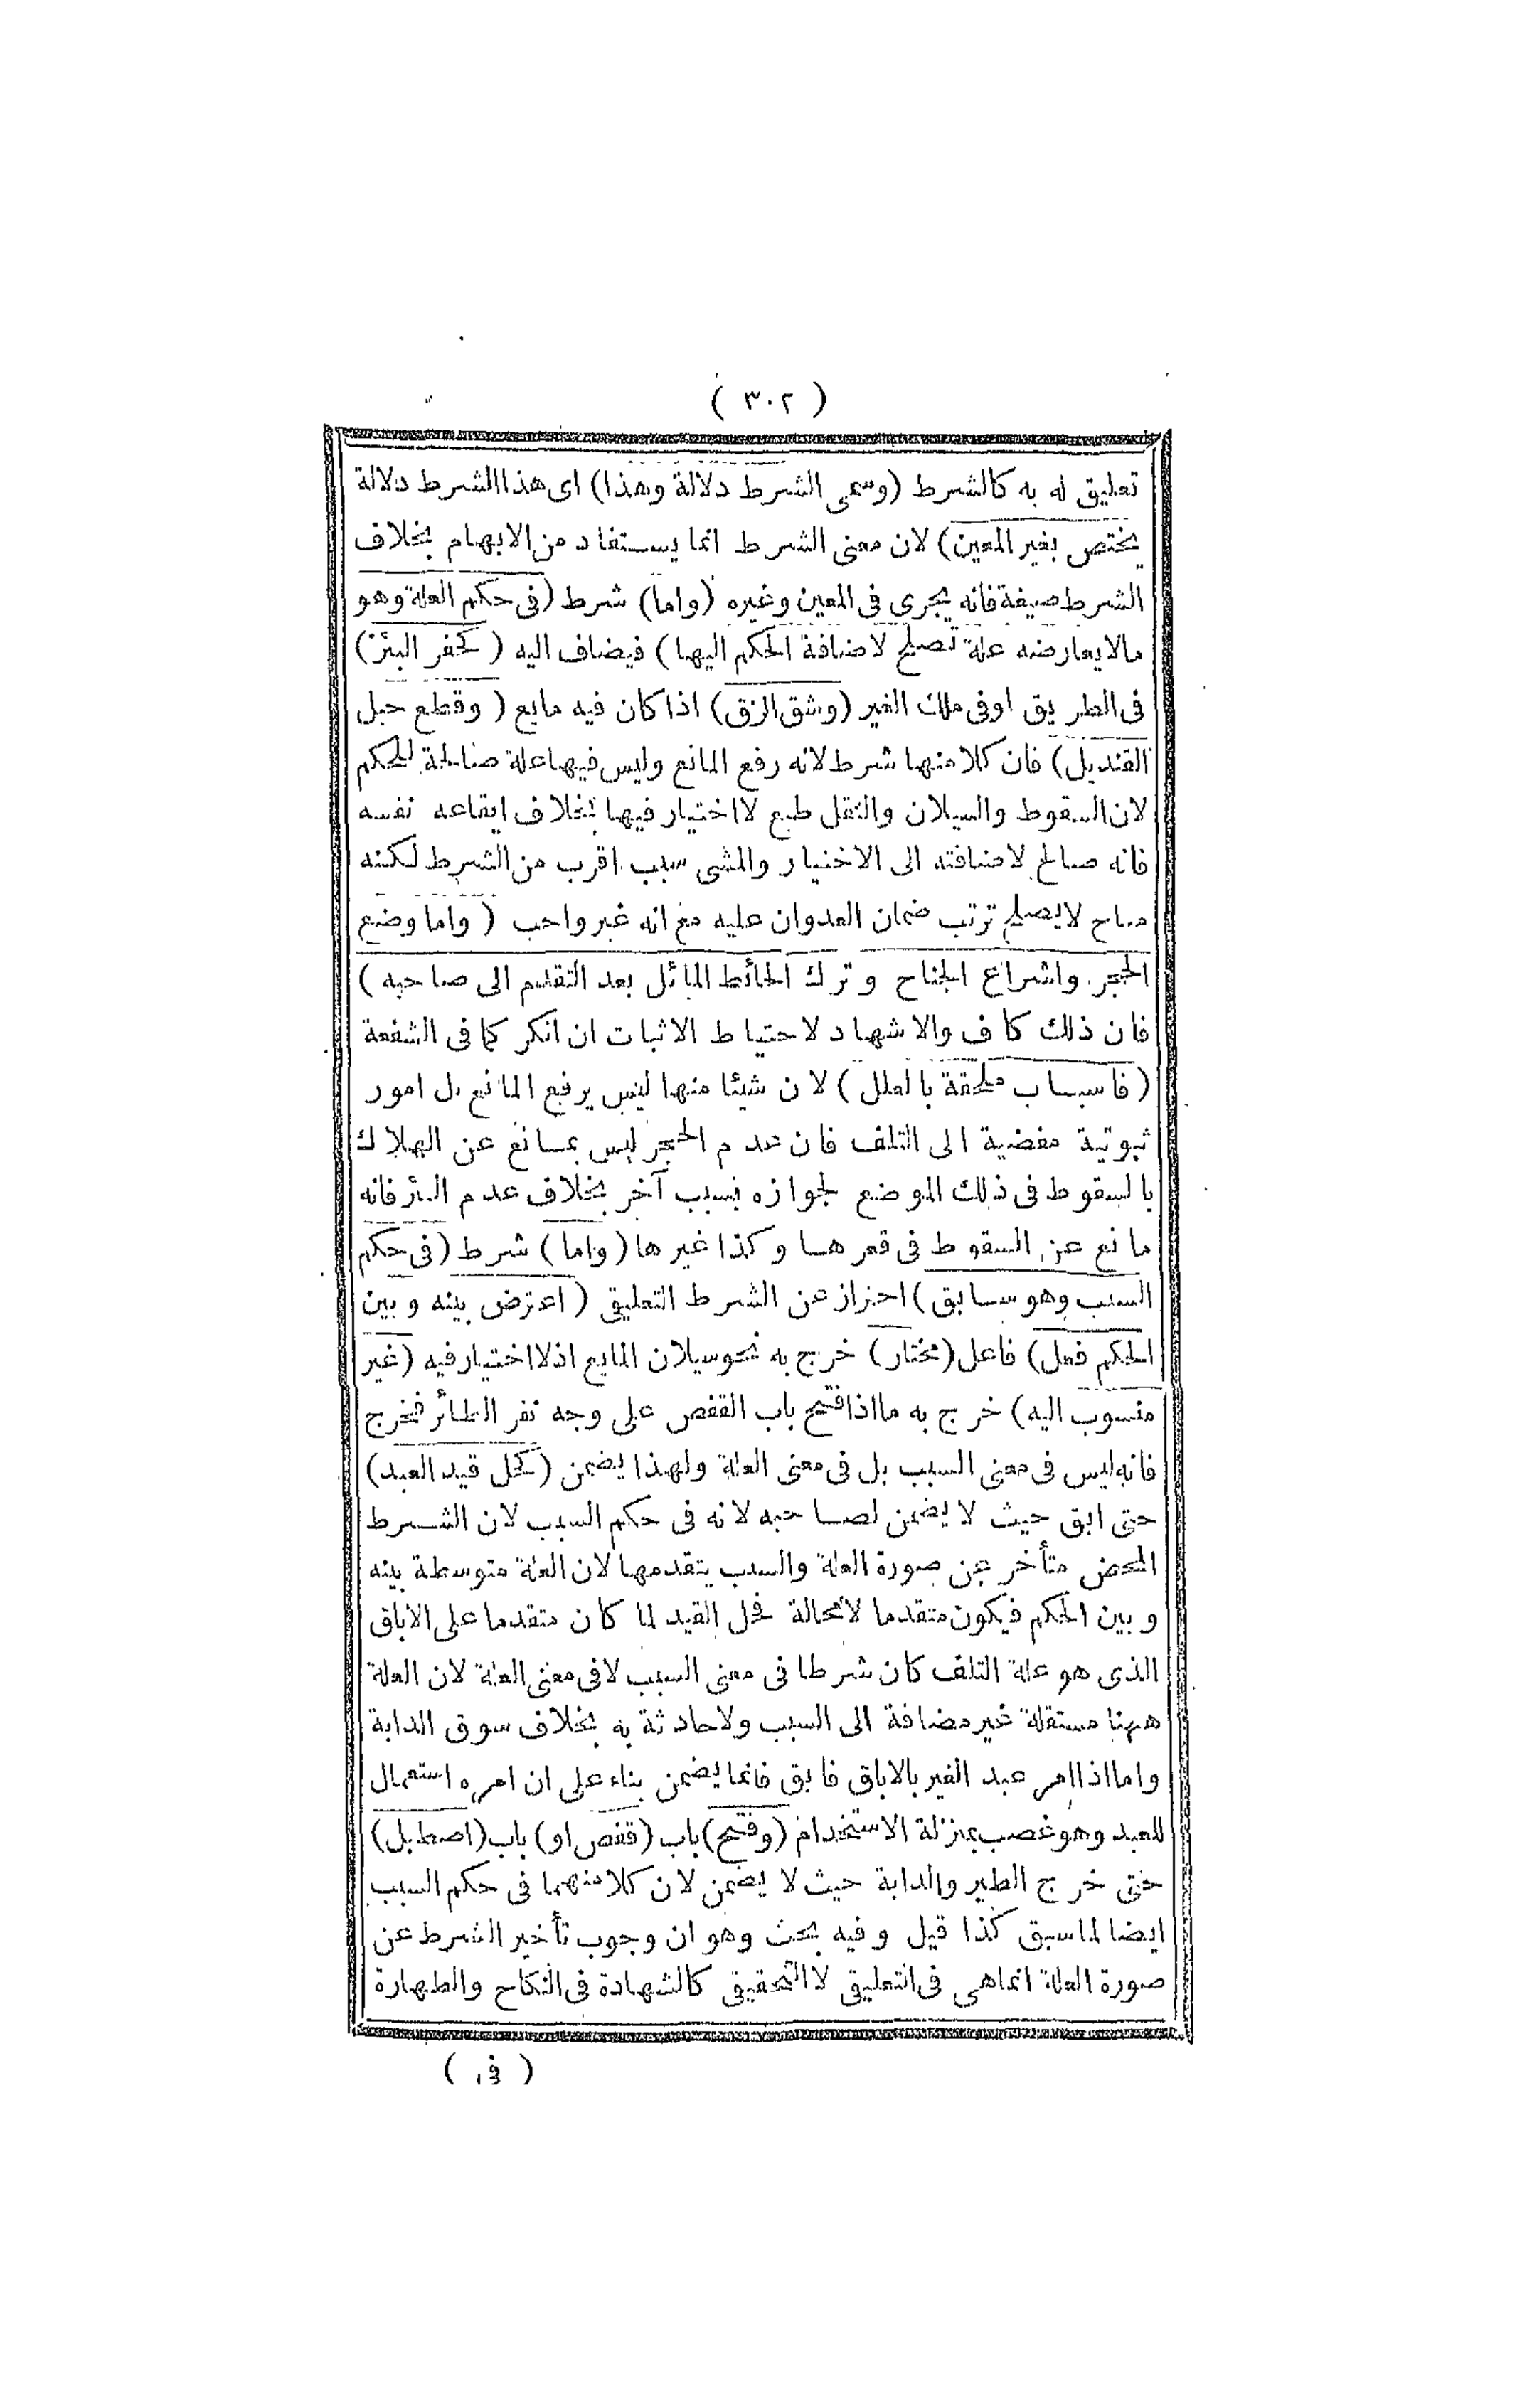 ( ٣٠٢ )
تعليق له به كالشرط (وسمى الشرط دلالة وهذا) اى هذا الشرط دلالة
يختص بغير المعين) لان معنى الشرط انما يستفاد من الابهام بخلاف
الشرط صيغة فانه يجرى فى المعين وغيره (واما) شرط (فى حكم العلة وهو
مالايعارضه علة تصلح لاضافة الحكم اليها) فيضاف اليه (كحفر البئر)
فى الطريق اوفى ملك الغير (وشق الزق) اذا كان فيه مايع (وقطع حبل
القنديل) فان كلا منها شرط لانه رفع المانع وليس فيها علة صالحة للحكم
لان السقوط والسيلان والثقل طبع لا اختيار فيها بخلاف ايقاعه نفسه
فانه صالح لاضافته الى الاختيار والمشى سبب اقرب من الشرط لكنه
مباح لايصلح ترتب ضمان العدوان عليه مع انه غير واجب (واما وضع
الحجر واشراع الجناح وترك الحائط المائل بعد التقدم الى صاحبه)
فان ذلك كاف والاشهاد لاحتياط الاثبات ان انكر كما فى الشفعة
(فاسباب ملحقة بالعلل) لان شيئا منها ليس برفع المانع بل امور
ثبوتية مفضية الى التلف فان عدم الحجر ليس بمانع عن الهلاك
بالسقوط فى ذلك الموضع لجوازه بسبب آخر بخلاف عدم البئر فانه
مانع عن السقوط فى قعرها وكذا غيرها (واما) شرط (فى حكم
السبب وهو سابق) احتراز عن الشرط التعليقى (اعترض بينه وبين
الحكم فعل) فاعل (مختار) خرج به نحو سيلان المايع اذلا اختيار فيه (غير
منسوب اليه) خرج به مااذا فتح باب القفص على وجه نفر الطائر فخرج
فانه ليس فى معنى السبب بل فى معنى العلة ولهذا يضمن (كحل قيد العبد)
حتى ابق حيث لا يضمن لصاحبه لانه فى حكم السبب لان الشرط
المحض متأخر عن صورة العلة والسبب يتقدمها لان العلة متوسطة بينه
وبين الحكم فيكون متقدما لامحالة فحل القيد لما كان متقدما على الاباق
الذى هو علة التلف كان شرطا فى معنى السبب لافى معنى العلة لان العلة
ههنا مستقلة غير مضافة الى السبب ولاحادثة به بخلاف سوق الدابة
واما اذا امر عبد الغير بالاباق فابق فانما يضمن بناء على ان امره استعمال
للعبد وهو غصب بمنزلة الاستخدام (وفتح) باب (قفص او) باب (اصطبل)
حتى خرج الطير والدابة حيث لا يضمن لان كلا منهما فى حكم السبب
ايضا لماسبق كذا قيل وفيه بحث وهو ان وجوب تأخير الشرط عن
صورة العلة انماهى فى التعليقى لا التحقيقى كالشهادة فى النكاح والطهارة
( فى )